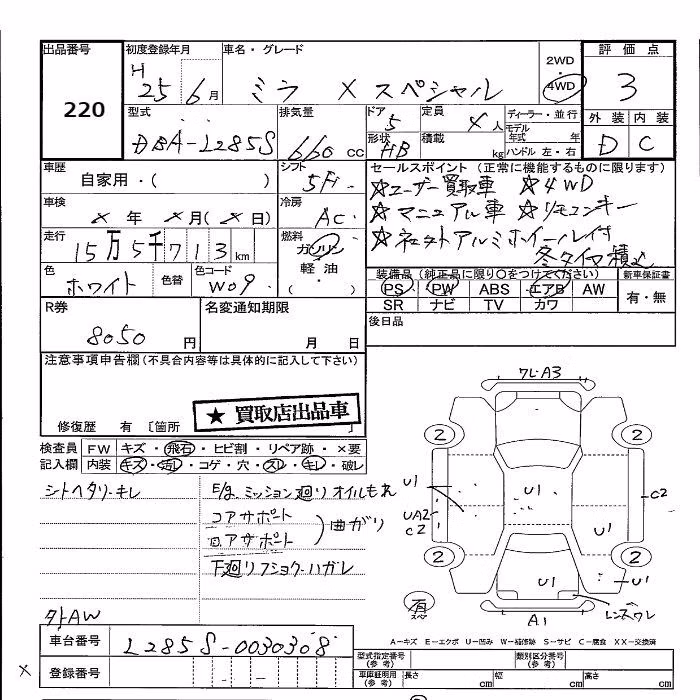 出品番号 220
初度登録年月 H 25 6 月
車名・グレード ミラ Xスペシャル
2WD
4WD
評価点 3
外装 内装
D C
型式 DBA-L285S
排気量 660 cc
ドア 5
定員 4 人
形状 HB
積載 kg
ディーラー・並行
モデル年式 年
ハンドル 左・右
車歴 自家用・( )
シフト 5F
車検 × 年 × 月(× 日)
冷房 AC
走行 15万5千713km
燃料 ガソリン
軽油
( )
色 ホワイト
色替
色コード W09
セールスポイント(正常に機能するものに限ります)
☆ユーザー買取車 ☆4WD
☆マニュアル車 ☆リモコンキー
☆社外アルミホイール付
冬タイヤ積込
装備品(純正品に限り○をつけてください)
新車保証書
PS PW ABS エアB AW
SR ナビ TV カワ
有・無
R券 8050 円
名変通知期限
月 日
後日品
注意事項申告欄(不具合内容等は具体的に記入して下さい)
★ 買取店出品車
修復歴 有 〔箇所 〕
検査員記入欄
FW キズ・飛石・ヒビ割・リペア跡・×要
内装 キズ・汚レ・コゲ・穴・スレ・キレ・破レ
シトヘタリ・キレ
E/g.ミッション廻りオイルもれ
コアサポート
ロアサポート
曲がり
下廻りフショク・ハガレ
外AW
ワレ・A3
2
2
U1
UA2
C2
U1
C2
U1
2
2
U1
U1
有
スペア
A1
レンズワレ
A−キズ E−エクボ U−凹み W−補修跡 S−サビ C−腐食 XX−交換済
車台番号 L285S-0030308
登録番号
×
型式指定番号(参考)
類別区分番号(参考)
車庫証明用(参考)
長さ cm
幅 cm
高さ cm